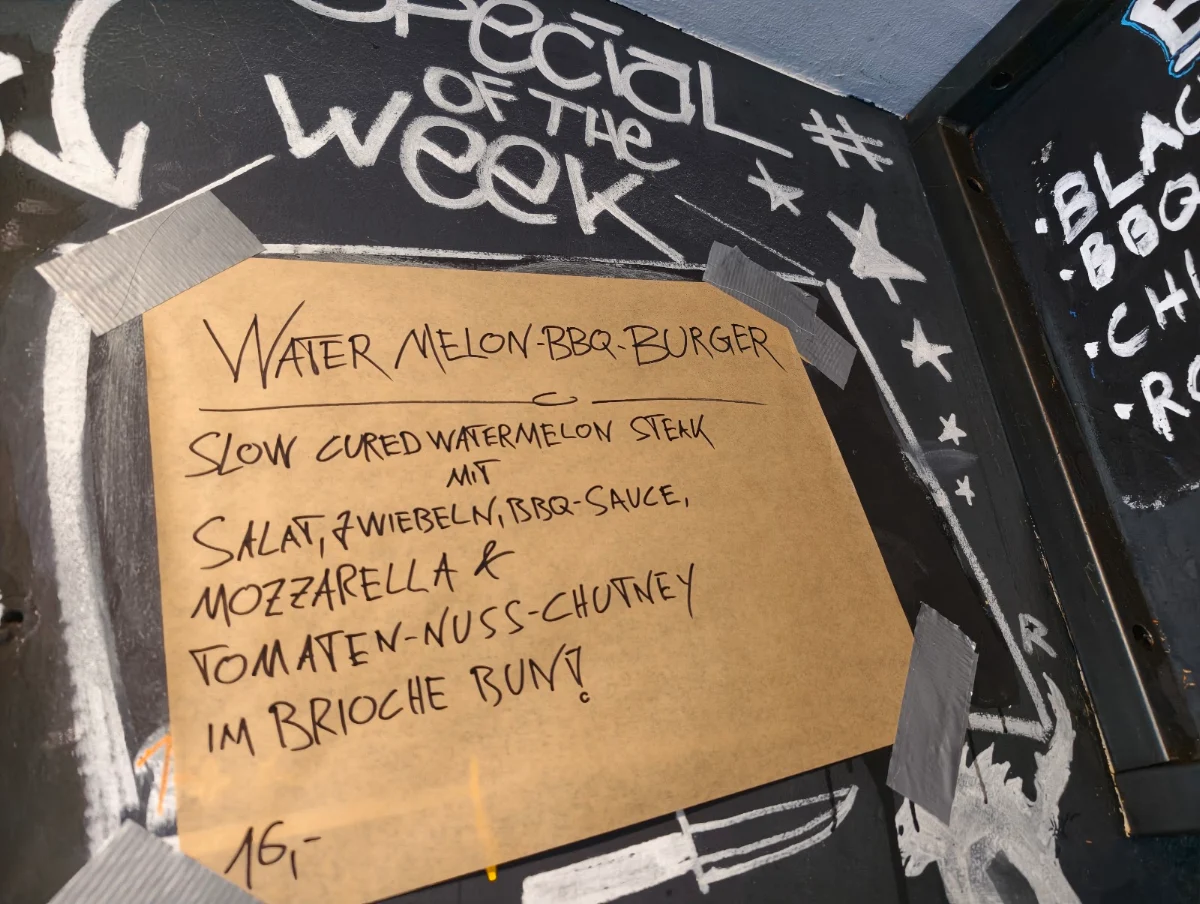 SPECIAL
OF THE
WEEK
#
WATER MELON-BBQ-BURGER
SLOW CURED WATERMELON STEAK
MIT
SALAT, ZWIEBELN, BBQ-SAUCE,
MOZZARELLA &
TOMATEN-NUSS-CHUTNEY
IM BRIOCHE BUN!
16,-
R
BBQ